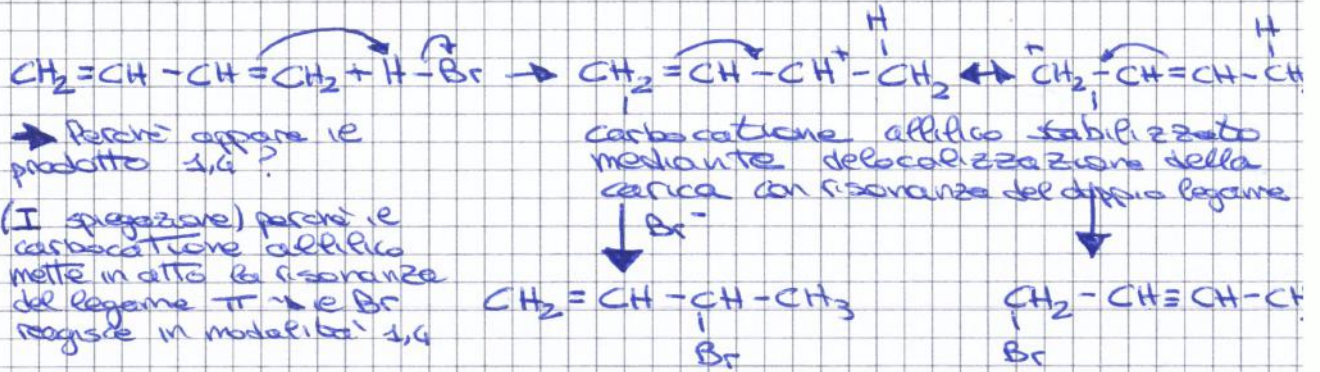 H H
CH₂=CH-CH=CH₂ + H-Br → CH₂=CH-CH⁺-CH₂ ↔ ⁺CH₂-CH=CH-CH
→ Perchè appare il
prodotto 1,4 ?
(I spiegazione) perchè il
carbocatione allilico
mette in atto la risonanza
del legame π → e Br
reagisce in modalità 1,4
carbocatione allilico stabilizzato
mediante delocalizzazione della
carica con risonanza del doppio legame
Br⁻
CH₂=CH-CH-CH₃
Br
CH₂-CH≡CH-CH
Br